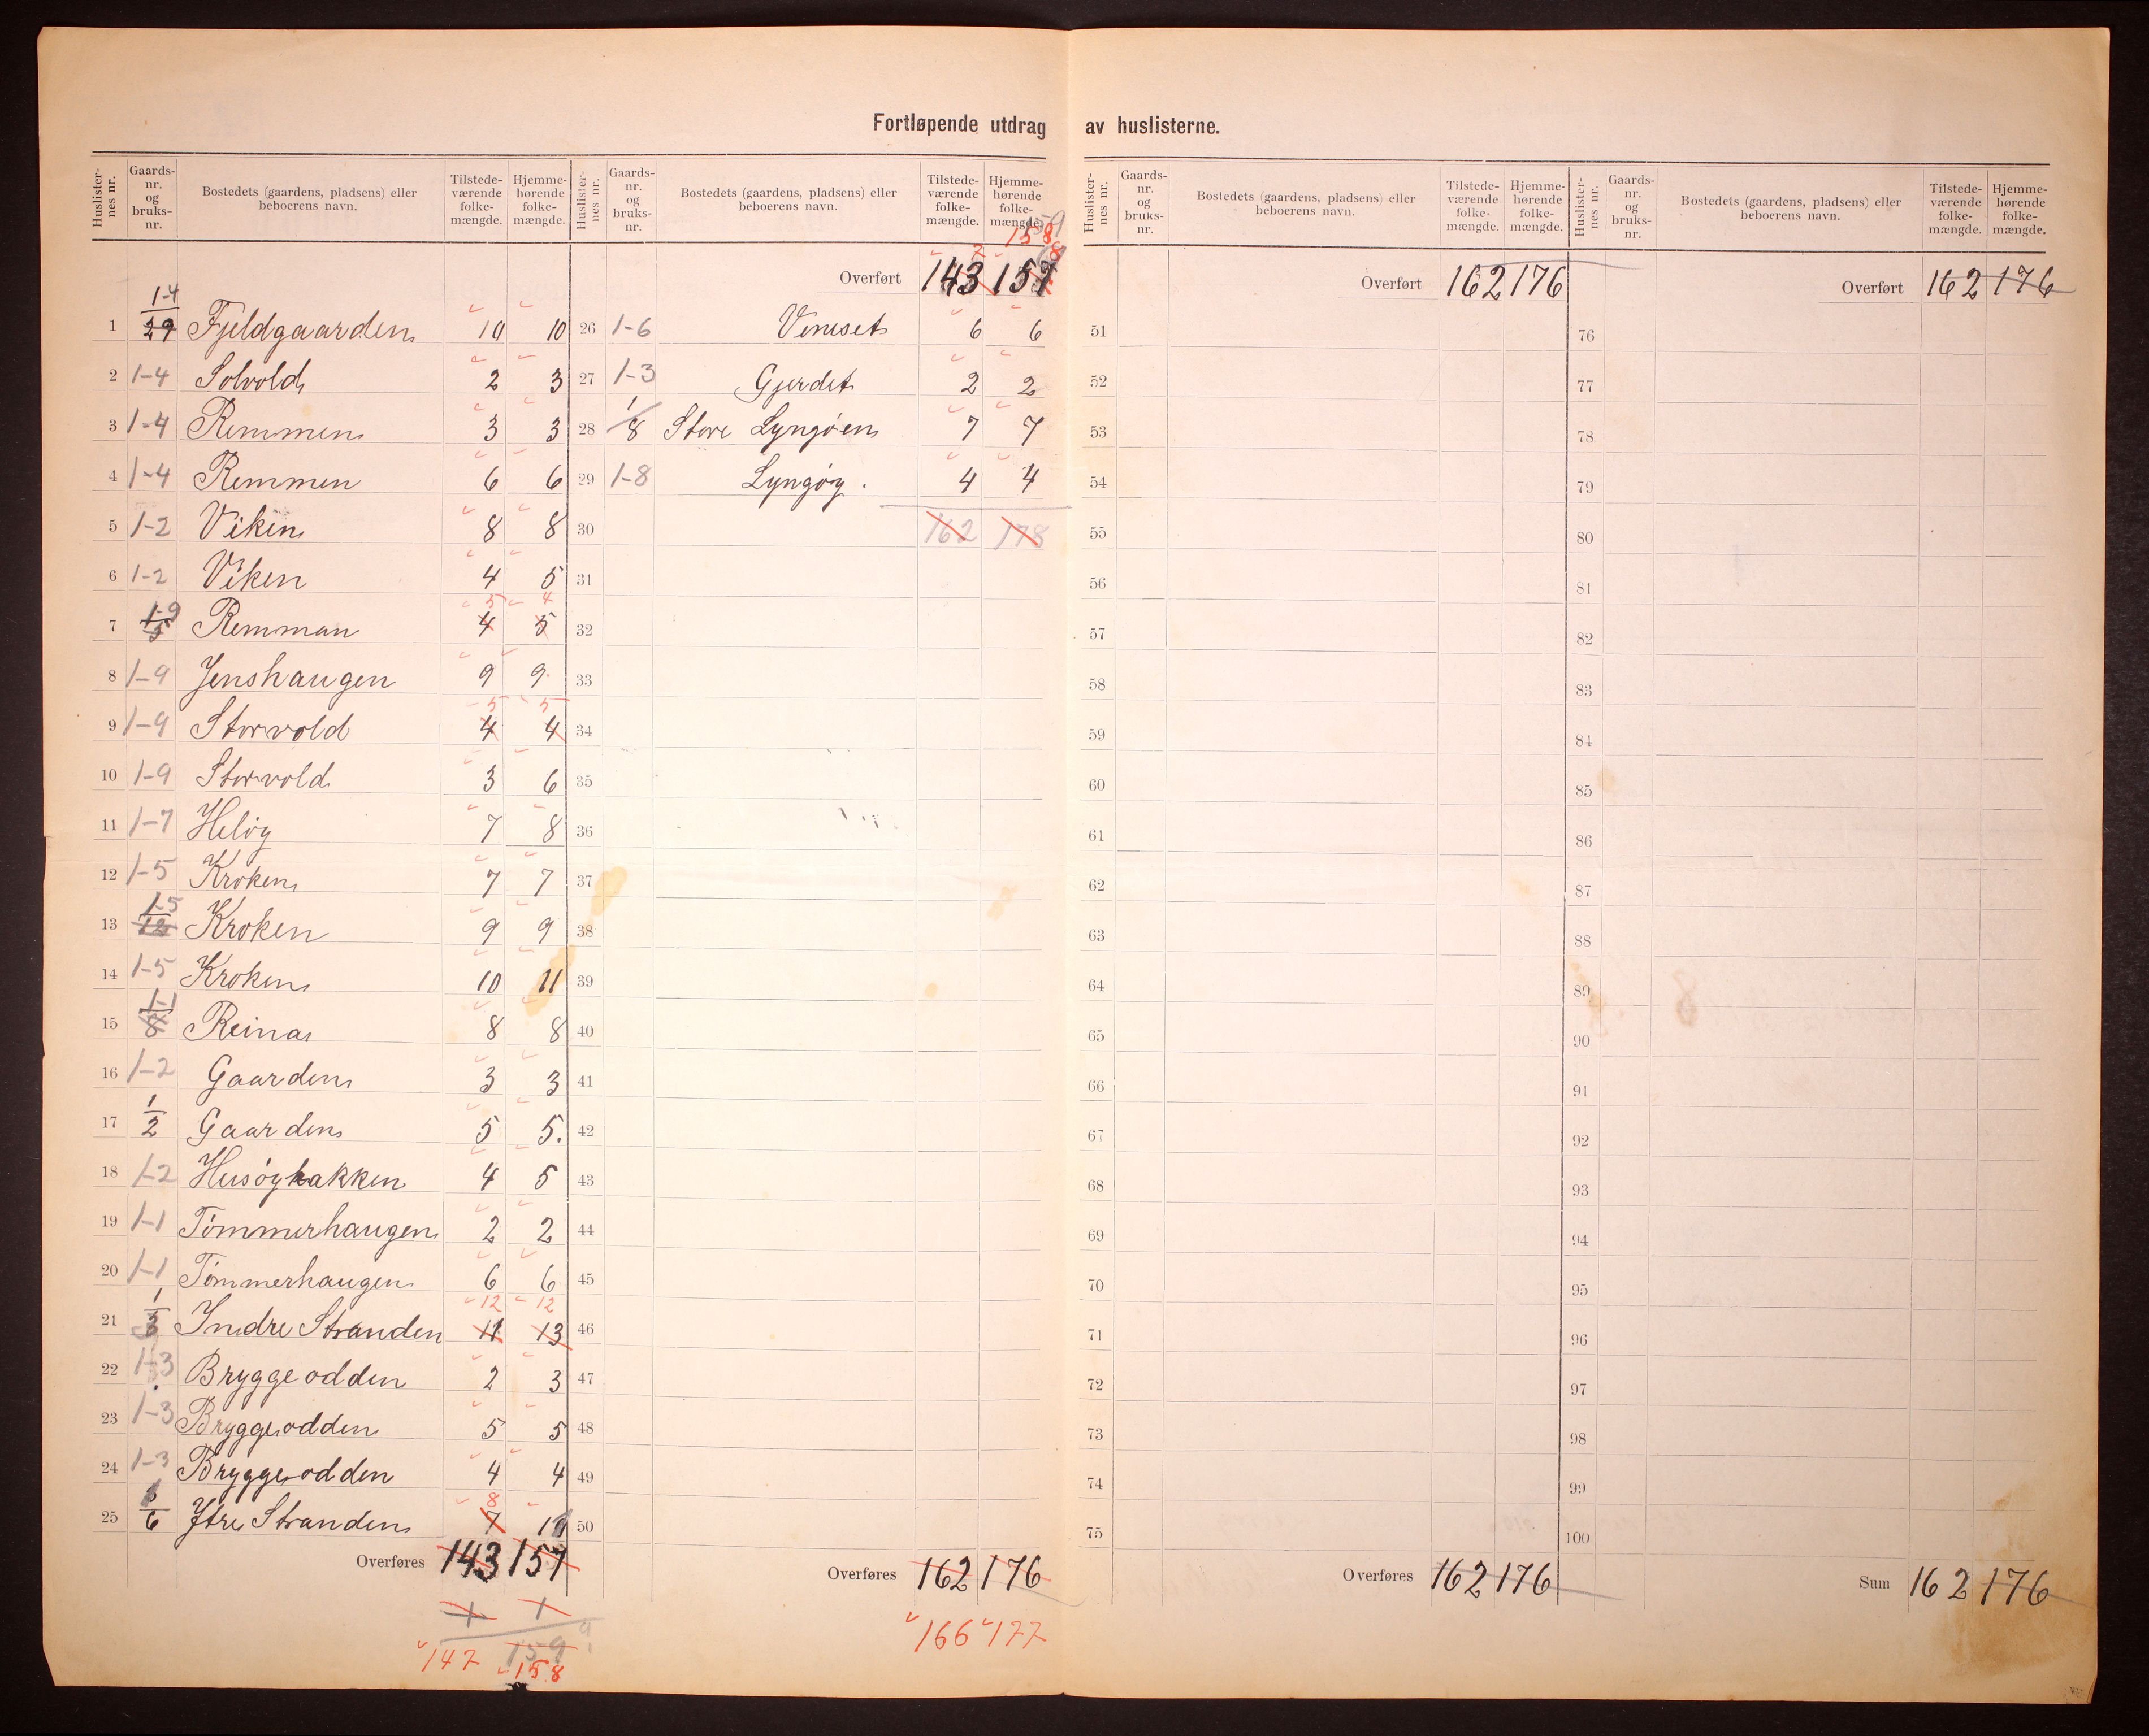 Fortløpende utdrag av huslisterne.
Huslisternes nr. Gaards-nr. og bruks-nr. Bostedets (gaardens, pladsens) eller beboerens navn. Tilstedeværende folkemængde. Hjemmehørende folkemængde.
1 1-4 29 Fjeldgaarden 10 10
2 1-4 Solvold 2 3
3 1-4 Remmen 3 3
4 1-4 Remmen 6 6
5 1-2 Viken 8 8
6 1-2 Viken 4 5
7 1-9 5 Remman 4 5 5 4
8 1-9 Jenshaugen 9 9
9 1-9 Storvold 4 4 5 5
10 1-9 Storvold 3 6
11 1-7 Heløy 7 8
12 1-5 Kroken 7 7
13 1-5 12 Kroken 9 9
14 1-5 Kroken 10 11
15 1-1 8 Reina 8 8
16 1-2 Gaarden 3 3
17 1/2 Gaarden 5 5.
18 1-2 Husøybakken 4 5
19 1-1 Tømmerhaugen 2 2
20 1-1 Tømmerhaugen 6 6
21 1/3 Indre Stranden 11 13 12 12
22 1-3 Bryggeodden 2 3
23 1-3 Bryggeodden 5 5
24 1-3 Bryggeodden 4 4
25 /6 Ytre Stranden 7 8
Overføres 143 157
1 1
159
147 158
Huslisternes nr. Gaards-nr. og bruks-nr. Bostedets (gaardens, pladsens) eller beboerens navn. Tilstedeværende folkemængde. Hjemmehørende folkemængde.
159
158
Overført 143 157
26 1-6 Vinset 6 6
27 1-3 Gjerdet 2 2
28 1/8 Store Lyngøen 7 7
29 1-8 Lyngøy. 4 4
30 162 178
31
32
33
34
35
36
37
38
39
40
41
42
43
44
45
46
47
48
49
50
Overføres 162 176
166 177
Huslisternes nr. Gaards-nr. og bruks-nr. Bostedets (gaardens, pladsens) eller beboerens navn. Tilstedeværende folkemængde. Hjemmehørende folkemængde.
Overført 162 176
51
52
53
54
55
56
57
58
59
60
61
62
63
64
65
66
67
68
69
70
71
72
73
74
75
Overføres 162 176
Huslisternes nr. Gaards-nr. og bruks-nr. Bostedets (gaardens, pladsens) eller beboerens navn. Tilstedeværende folkemængde. Hjemmehørende folkemængde.
Overført 162 176
76
77
78
79
80
81
82
83
84
85
86
87
88
89
90
91
92
93
94
95
96
97
98
99
100
Sum 162 176